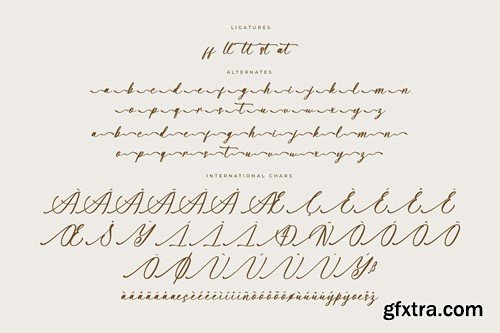 LIGATURES
ff ll tt st at
ALTERNATES
a b c d e f g h i j k l m n
o p q r s t u v w x y z
a b c d e f g h i j k l m n
o p q r s t u v w x y z
INTERNATIONAL CHARS
À Á Â Ã Ä Å Æ Ç È É Ê Ë
Œ Š Ÿ Ì Í Î Ð Ñ Ò Ó Ô Õ
Ö Ø Ù Ú Û Ü Ý ß
àáâãäåæçèéêëìíîïñðòóôõöøùúûüýþÿœšž
gfxtra.com